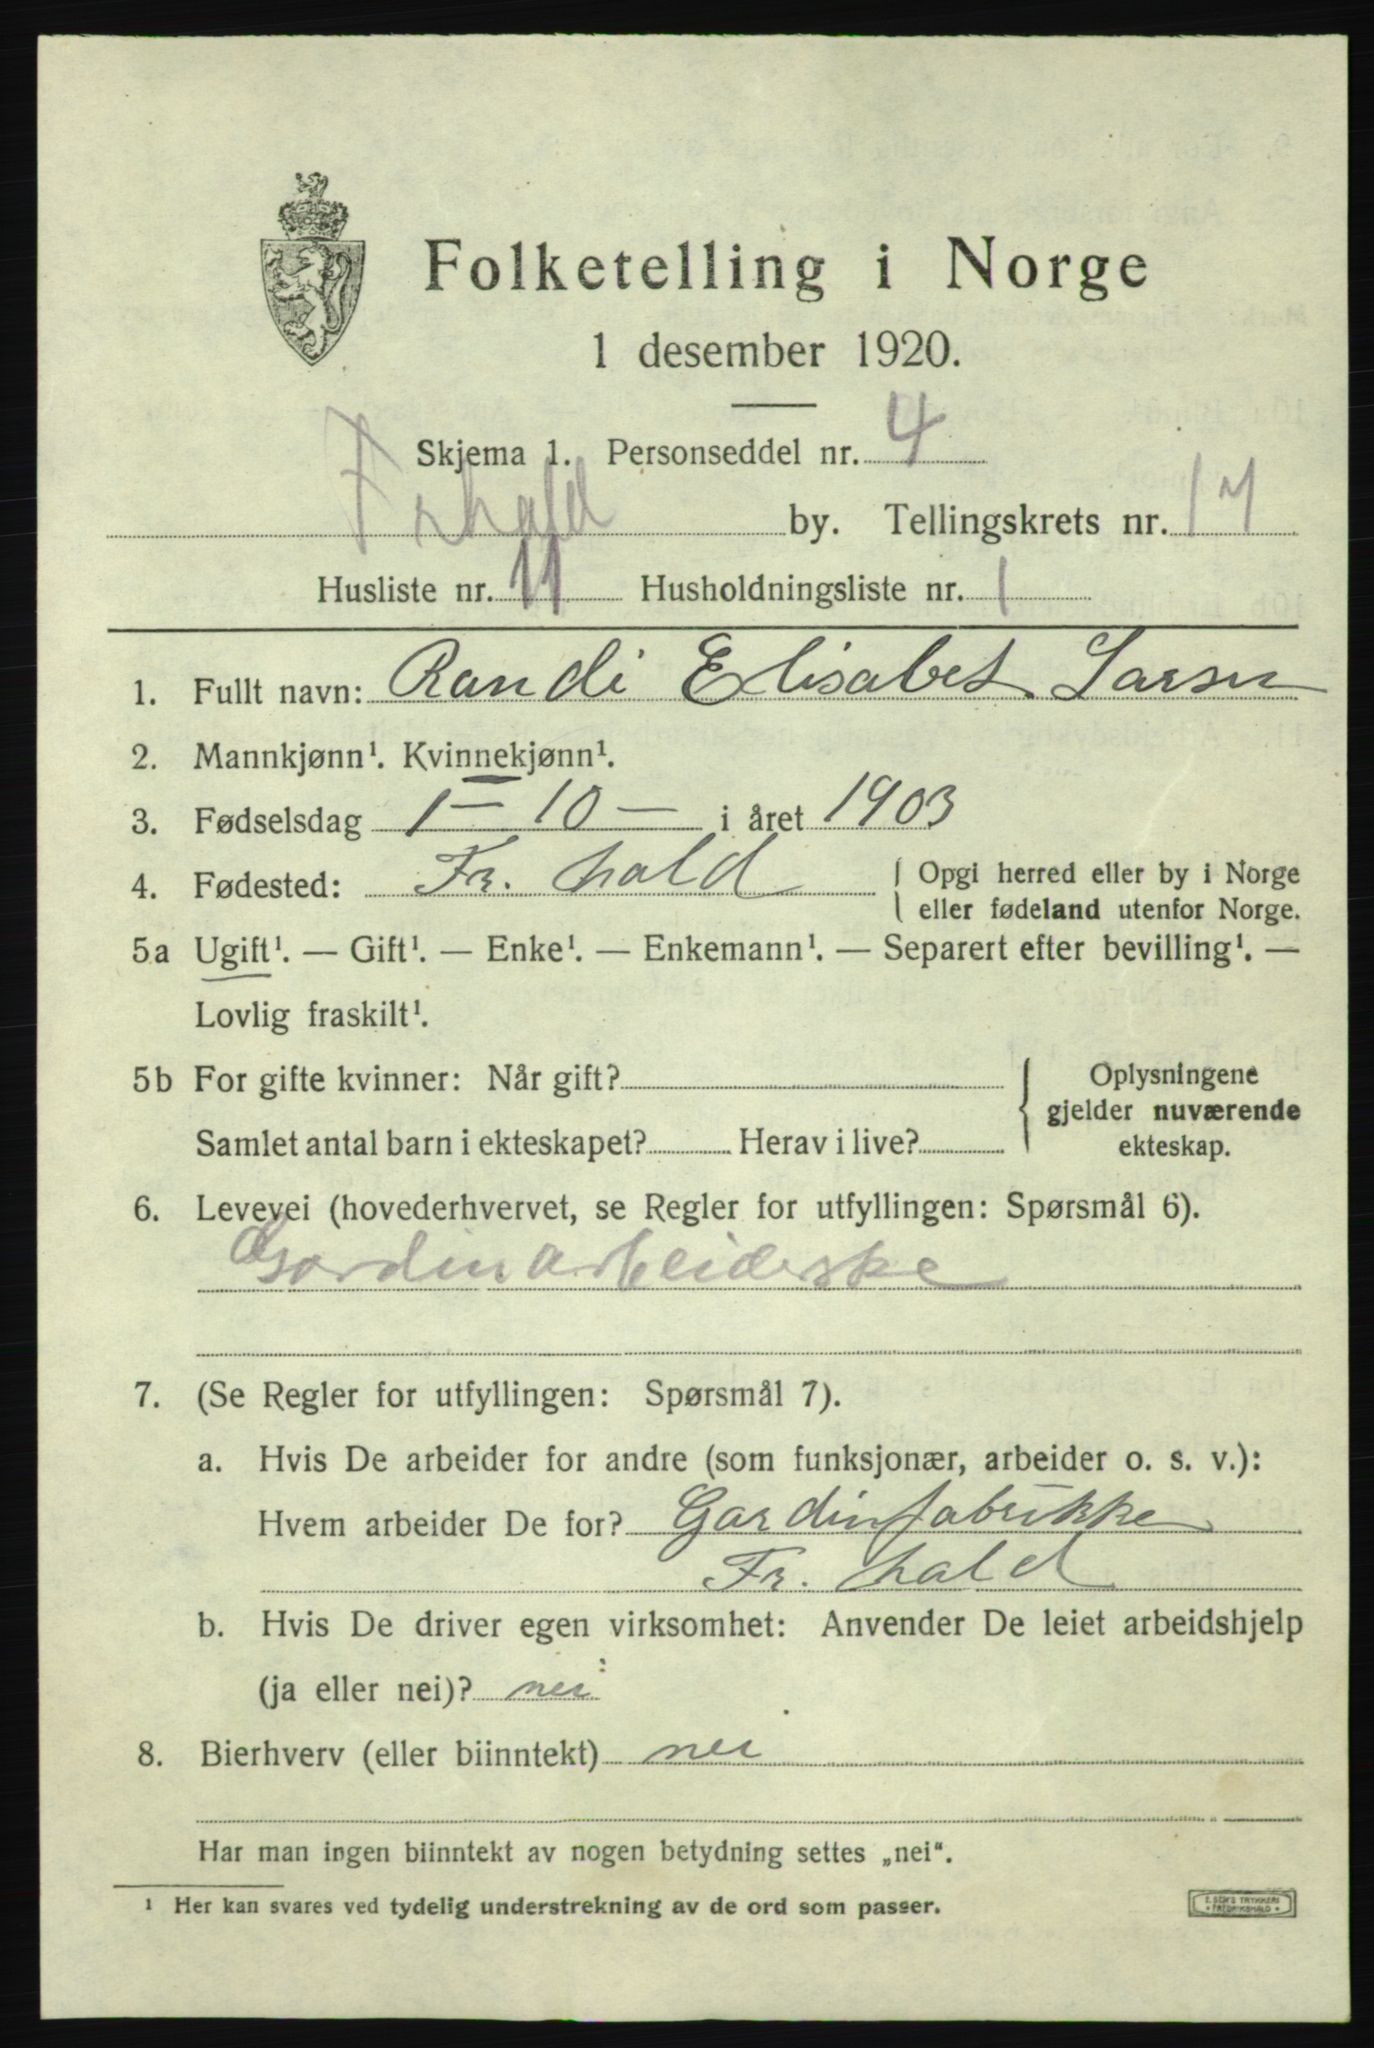 Folketelling i Norge
1 desember 1920.
Skjema 1. Personseddel nr. 4
Frhald by. Tellingskrets nr. 17
Husliste nr. 11 Husholdningsliste nr. 1
1. Fullt navn: Randi Elisabet Larsen
2. Mannkjønn¹. Kvinnekjønn¹.
3. Fødselsdag 1 – 10 – i året 1903
4. Fødested: Fr. hald { Opgi herred eller by i Norge
eller fødeland utenfor Norge.
5a Ugift¹. — Gift¹. — Enke¹. — Enkemann¹. — Separert efter bevilling¹. —
Lovlig fraskilt¹.
5b For gifte kvinner: Når gift? { Oplysningene
gjelder nuværende
Samlet antal barn i ekteskapet? Herav i live? ekteskap.
6. Levevei (hovederhvervet, se Regler for utfyllingen: Spørsmål 6).
Gardinarbeiderske
7. (Se Regler for utfyllingen: Spørsmål 7).
a. Hvis De arbeider for andre (som funksjonær, arbeider o. s. v.):
Hvem arbeider De for? Gardinfabrikke
Fr. hald
b. Hvis De driver egen virksomhet: Anvender De leiet arbeidshjelp
(ja eller nei)? nei
8. Bierhverv (eller biinntekt) nei
Har man ingen biinntekt av nogen betydning settes „nei“.
¹ Her kan svares ved tydelig understrekning av de ord som passer.
E. SEM'S TRYKKERI
• FREDRIKSHALD •